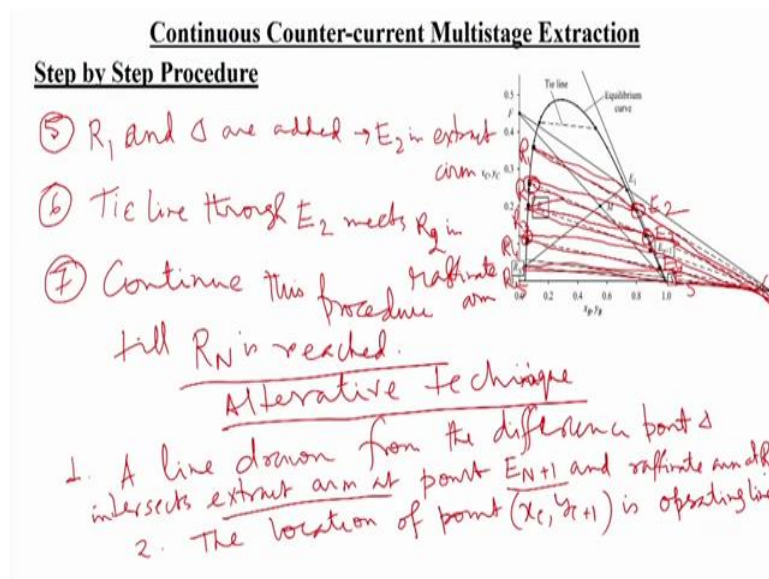 Continuous Counter-current Multistage Extraction
Step by Step Procedure
⑤ R1 and Δ are added → E2 in extract
arm
⑥ Tie line through E2 meets R2 in
raffinate
arm
⑦ Continue this procedure
till RN is reached.
Alterative technique
1. A line drawn from the difference point Δ
intersects extract arm at point EN+1 and raffinate arm at R
2. The location of point (xc, yc+1) is operating line
Tie line
Equilibrium
curve
0.5
F
0.4
0.3
0.2
0.0 0.2 0.4 0.6 0.8 1.0
R1
E1
E2
M